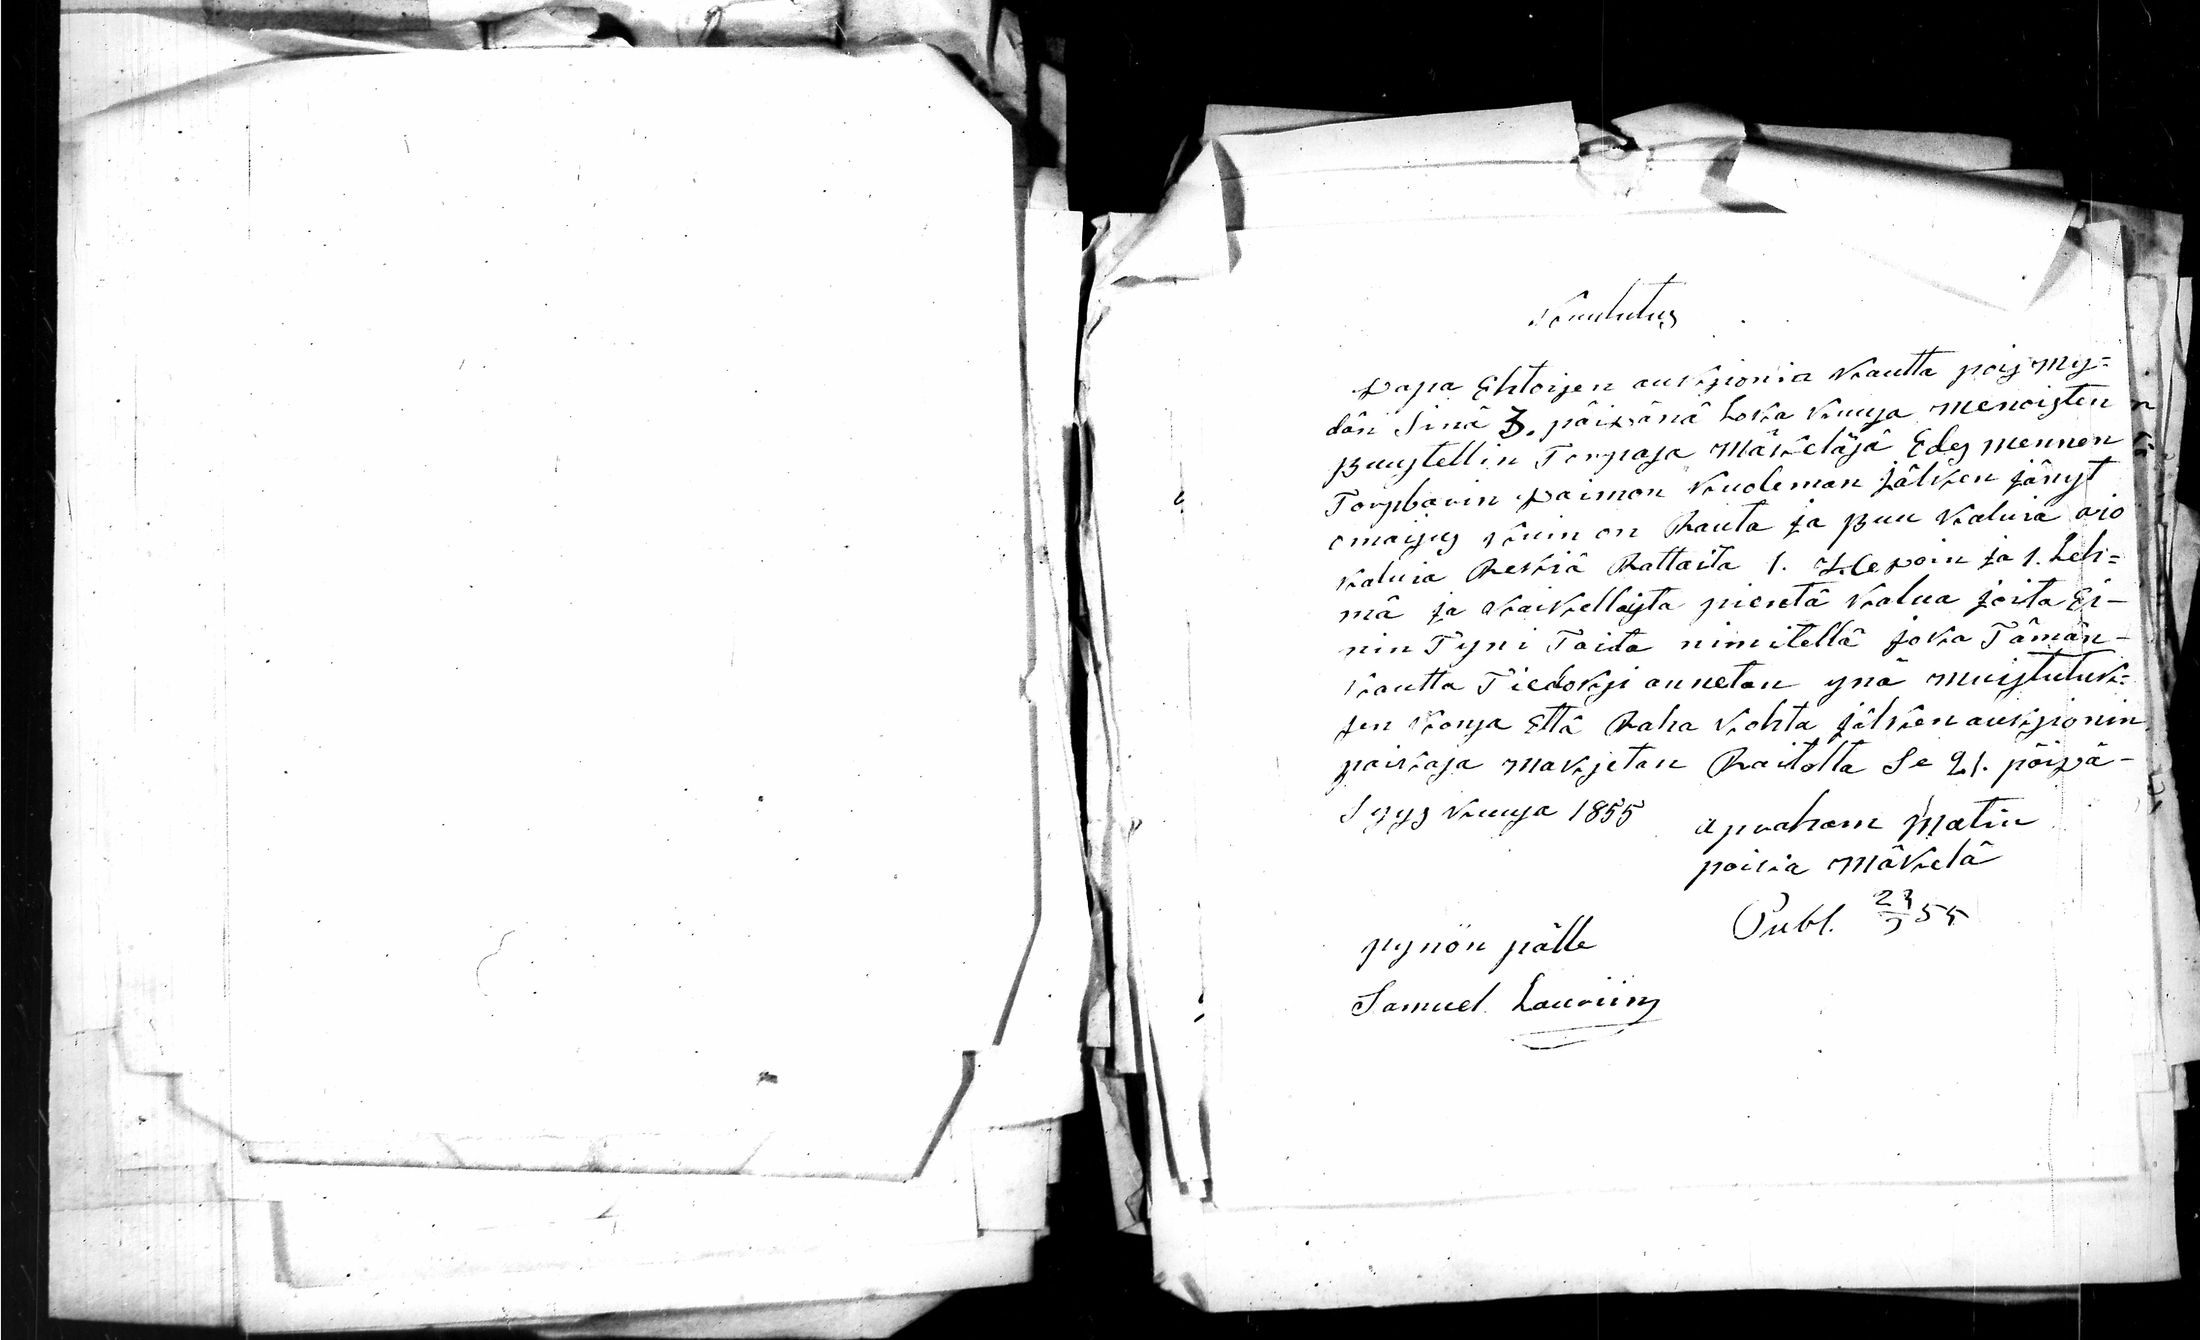 Kuulutus
vapa Ehtoisen auksionin kautta pois my=
dän Sinä 3. päivänä Loka kuusa menoisten
Buustellin Torpasa Mäkeläsä Edes mennen
Torpbarin vaimon kuoleman jälken jänyt
omaisus kuin on Rauta ja Buu kaluia aio
kaluia Rekiä Rattaita 1. Hevoin ja 1. Leh=
mä ja kaikellaista pientä kalua joita Ei-
nin Tyni Taida nimitellä joka Tämän-
kautta Tiedoksi annetan ynä muistutuk=
sen kansa Että Raha kohta jälken auksionin
paikasa maksetan Raitolta Se 21. päivä-
Syys kuusa 1855
apraham Matin
poika Mäkelä
Publ. 23/9 55
pynön pälle
Samuel Lauriin